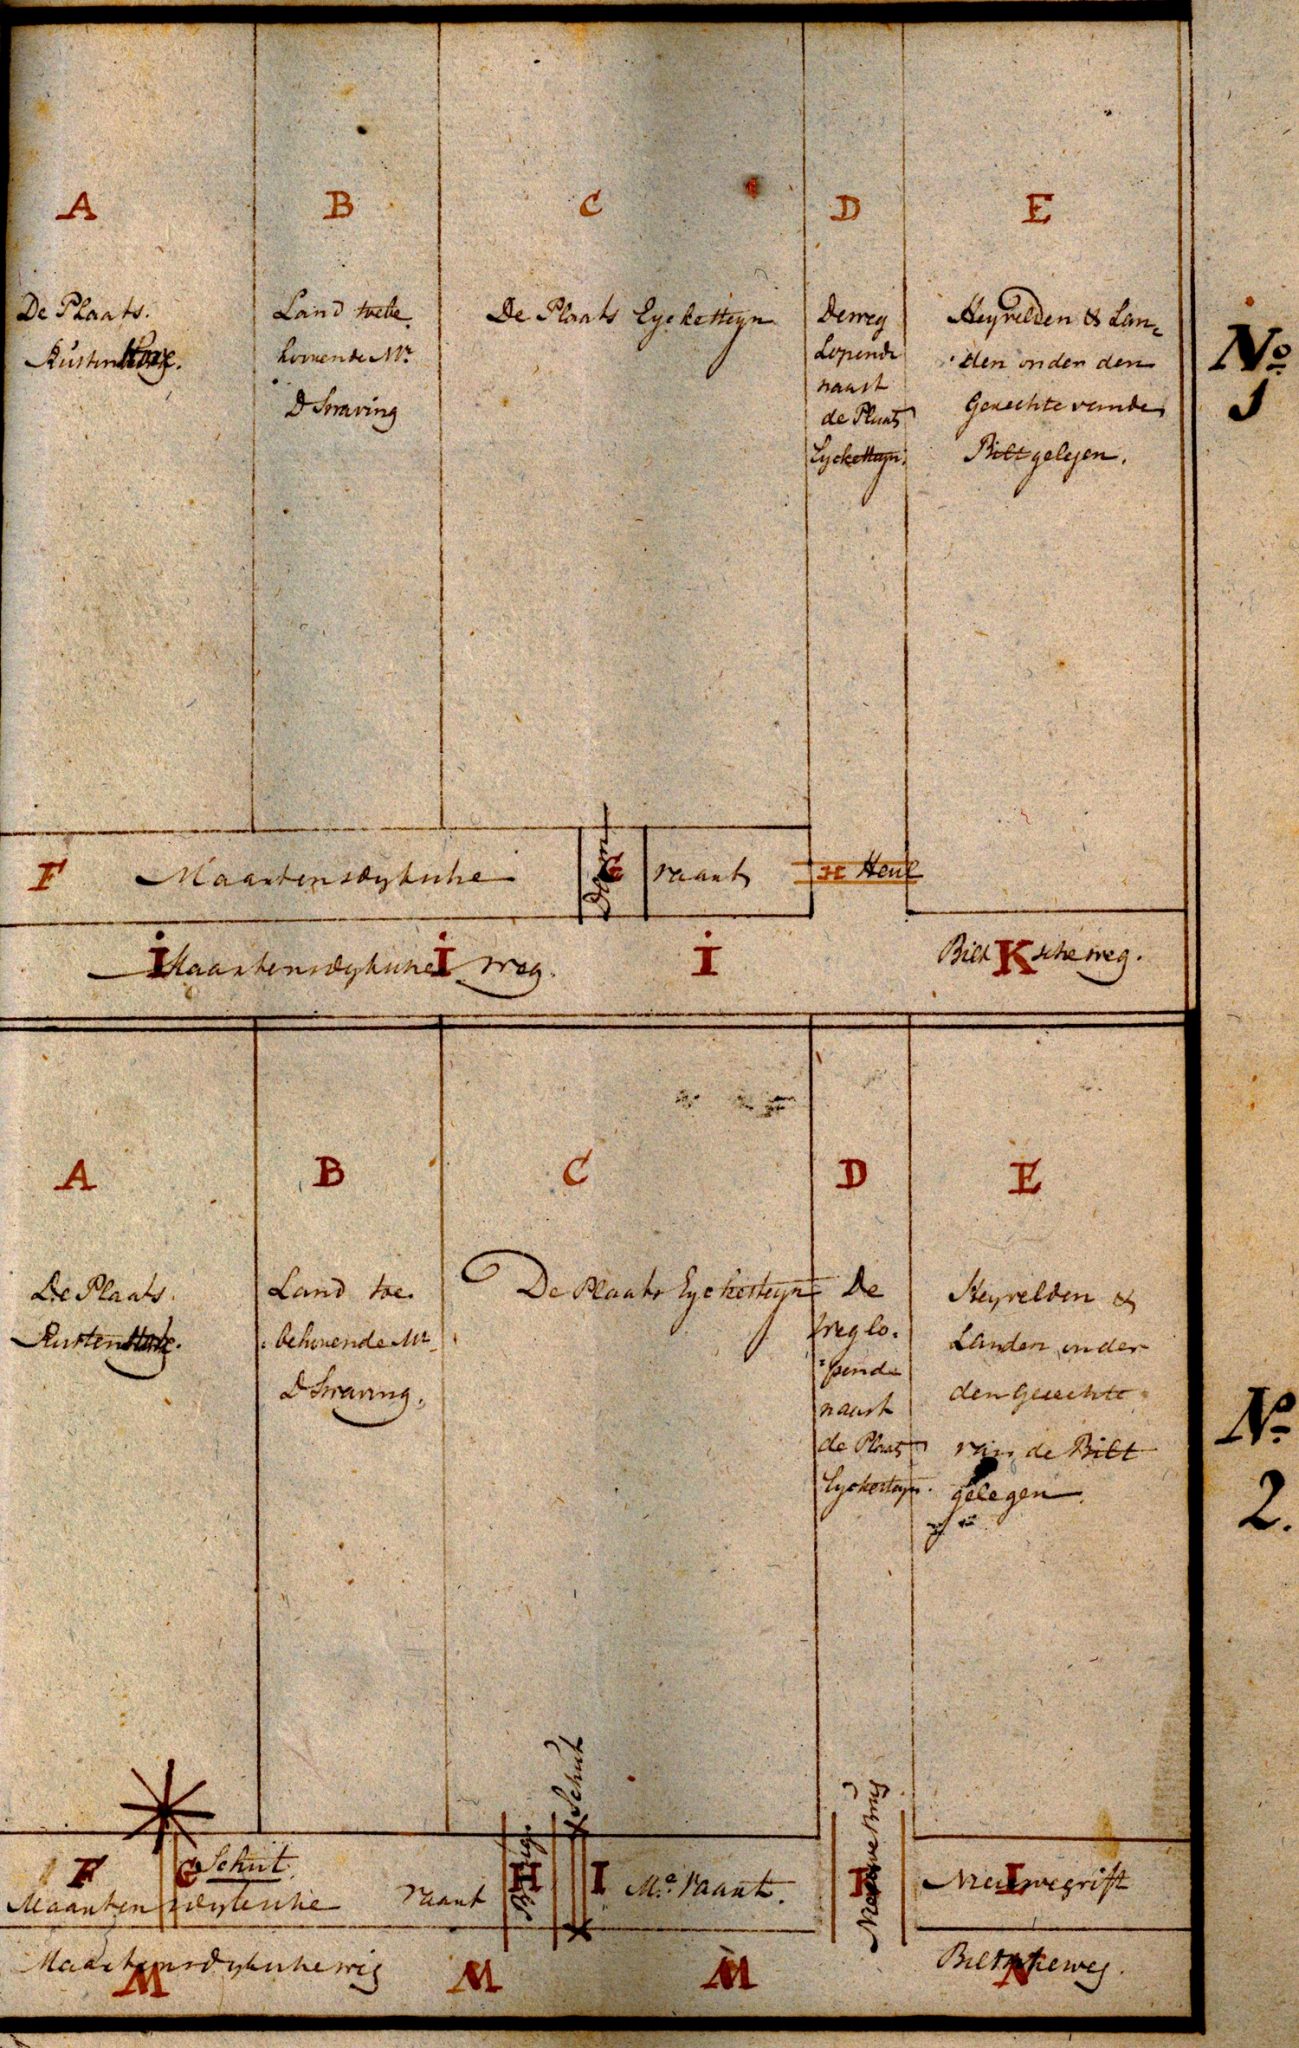 A
B
C
D
E
De Plaats.
Rustenhove.
Land toebe
hoorende Mr.
D Smaving
De Plaats Eyckesteyn
De weg
Lopende
naast
de Plaats
Eyckesteyn.
Heyvelden & Lan=
den onder den
Gerechte van de
Bilt gelegen.
No.
1
F
Maartensdyksche
Dam
G
vaart
H Heul
I
I
I
Maartensdyksche weg.
K
Biltsche weg.
A
B
C
D
E
De Plaats.
Rustenhove.
Land toe
behorende Mr.
D Smaving.
De Plaats Eyckesteyn
De
weg lo=
pende
naast
de Plaats
Eyckesteyn.
Heyvelden &
Landen onder
den Gerechte
van de Bilt
gelegen.
No.
2.
F
G
Schut
Maartensdyksche vaart
H
Brug.
Schut
I
Ma. vaart.
K
Nieuwe brug
L
Nieuwe grift
Maartensdyksche weg
M
M
M
Biltsche weg.
N